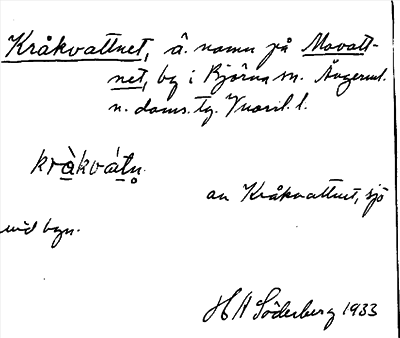 Kråkvattnet, ä. namn på Movatt-
net, by i Björna sn. Ångerml.
n. doms. tg. Vuoril. l.
kràkvátn.
av Kråkvattnet, sjö
vid byn.
H A Söderberg 1933